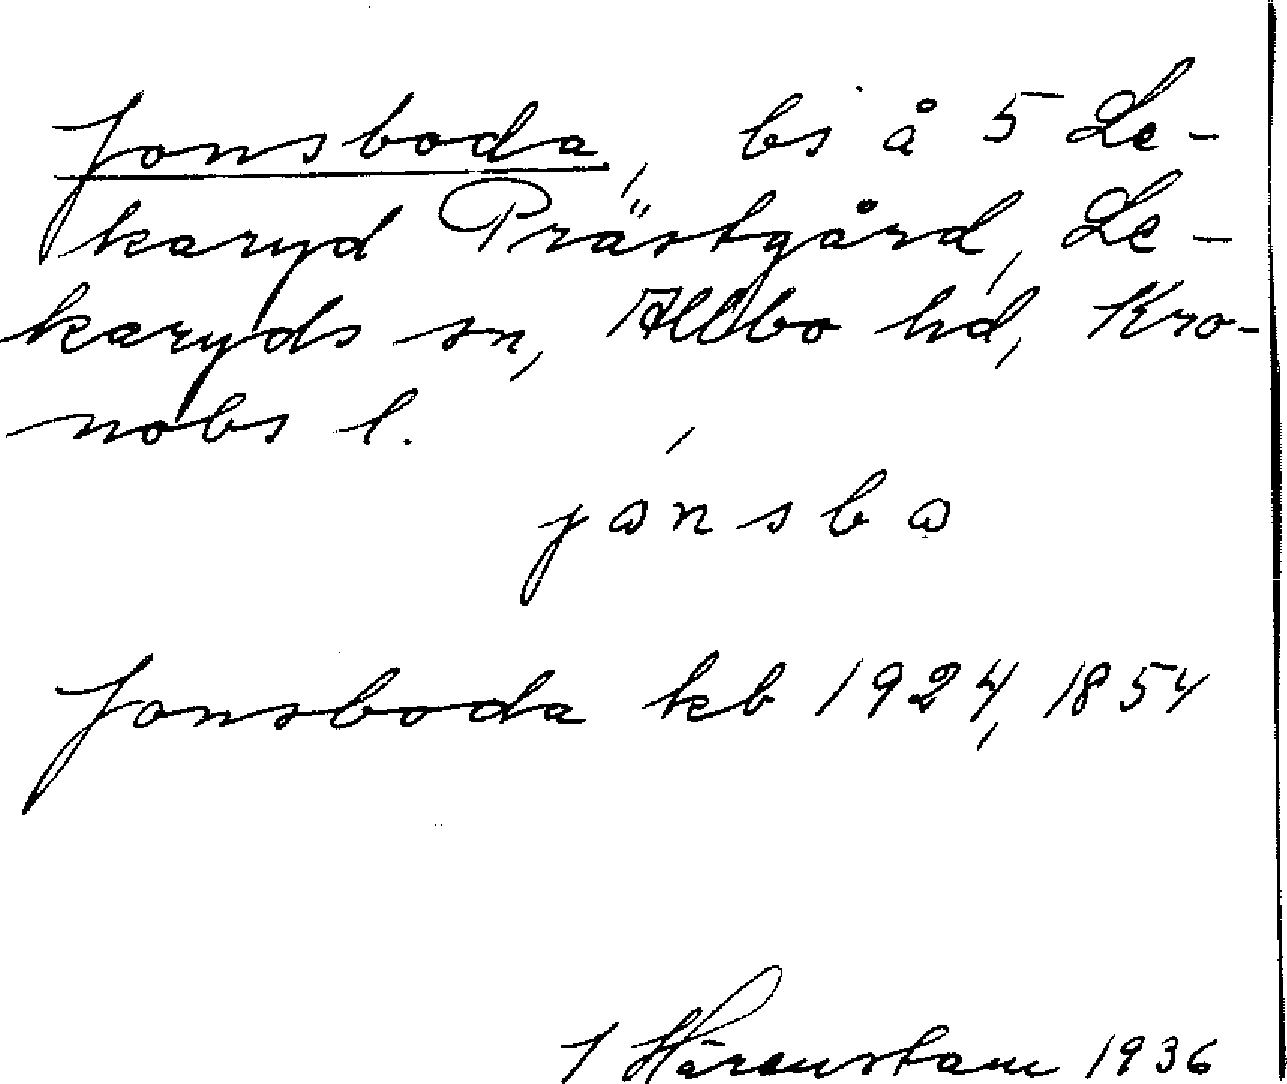 Jonsboda, bs å 5 Le-
karyd Prästgård, Le-
karyds sn, Allbo hd, Kro-
nobs l.
jonsbo
Jonsboda kb 1924, 1854
J Härenstam 1936